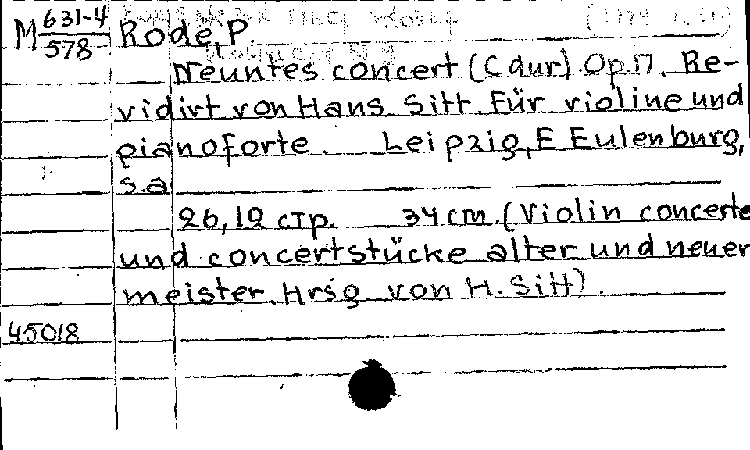 M 631-4 Rode, P.
578
Neuntes concert (C dur) Op 17. Re-
vidirt von Hans Sitt Für violine und
pianoforte. Leipzig, E Eulenburg,
s.a
26, 12 стр. 34 cm. (Violin concerte
und concertstücke alter und neuer
meister. Hrsg von H. Sitt).
45018